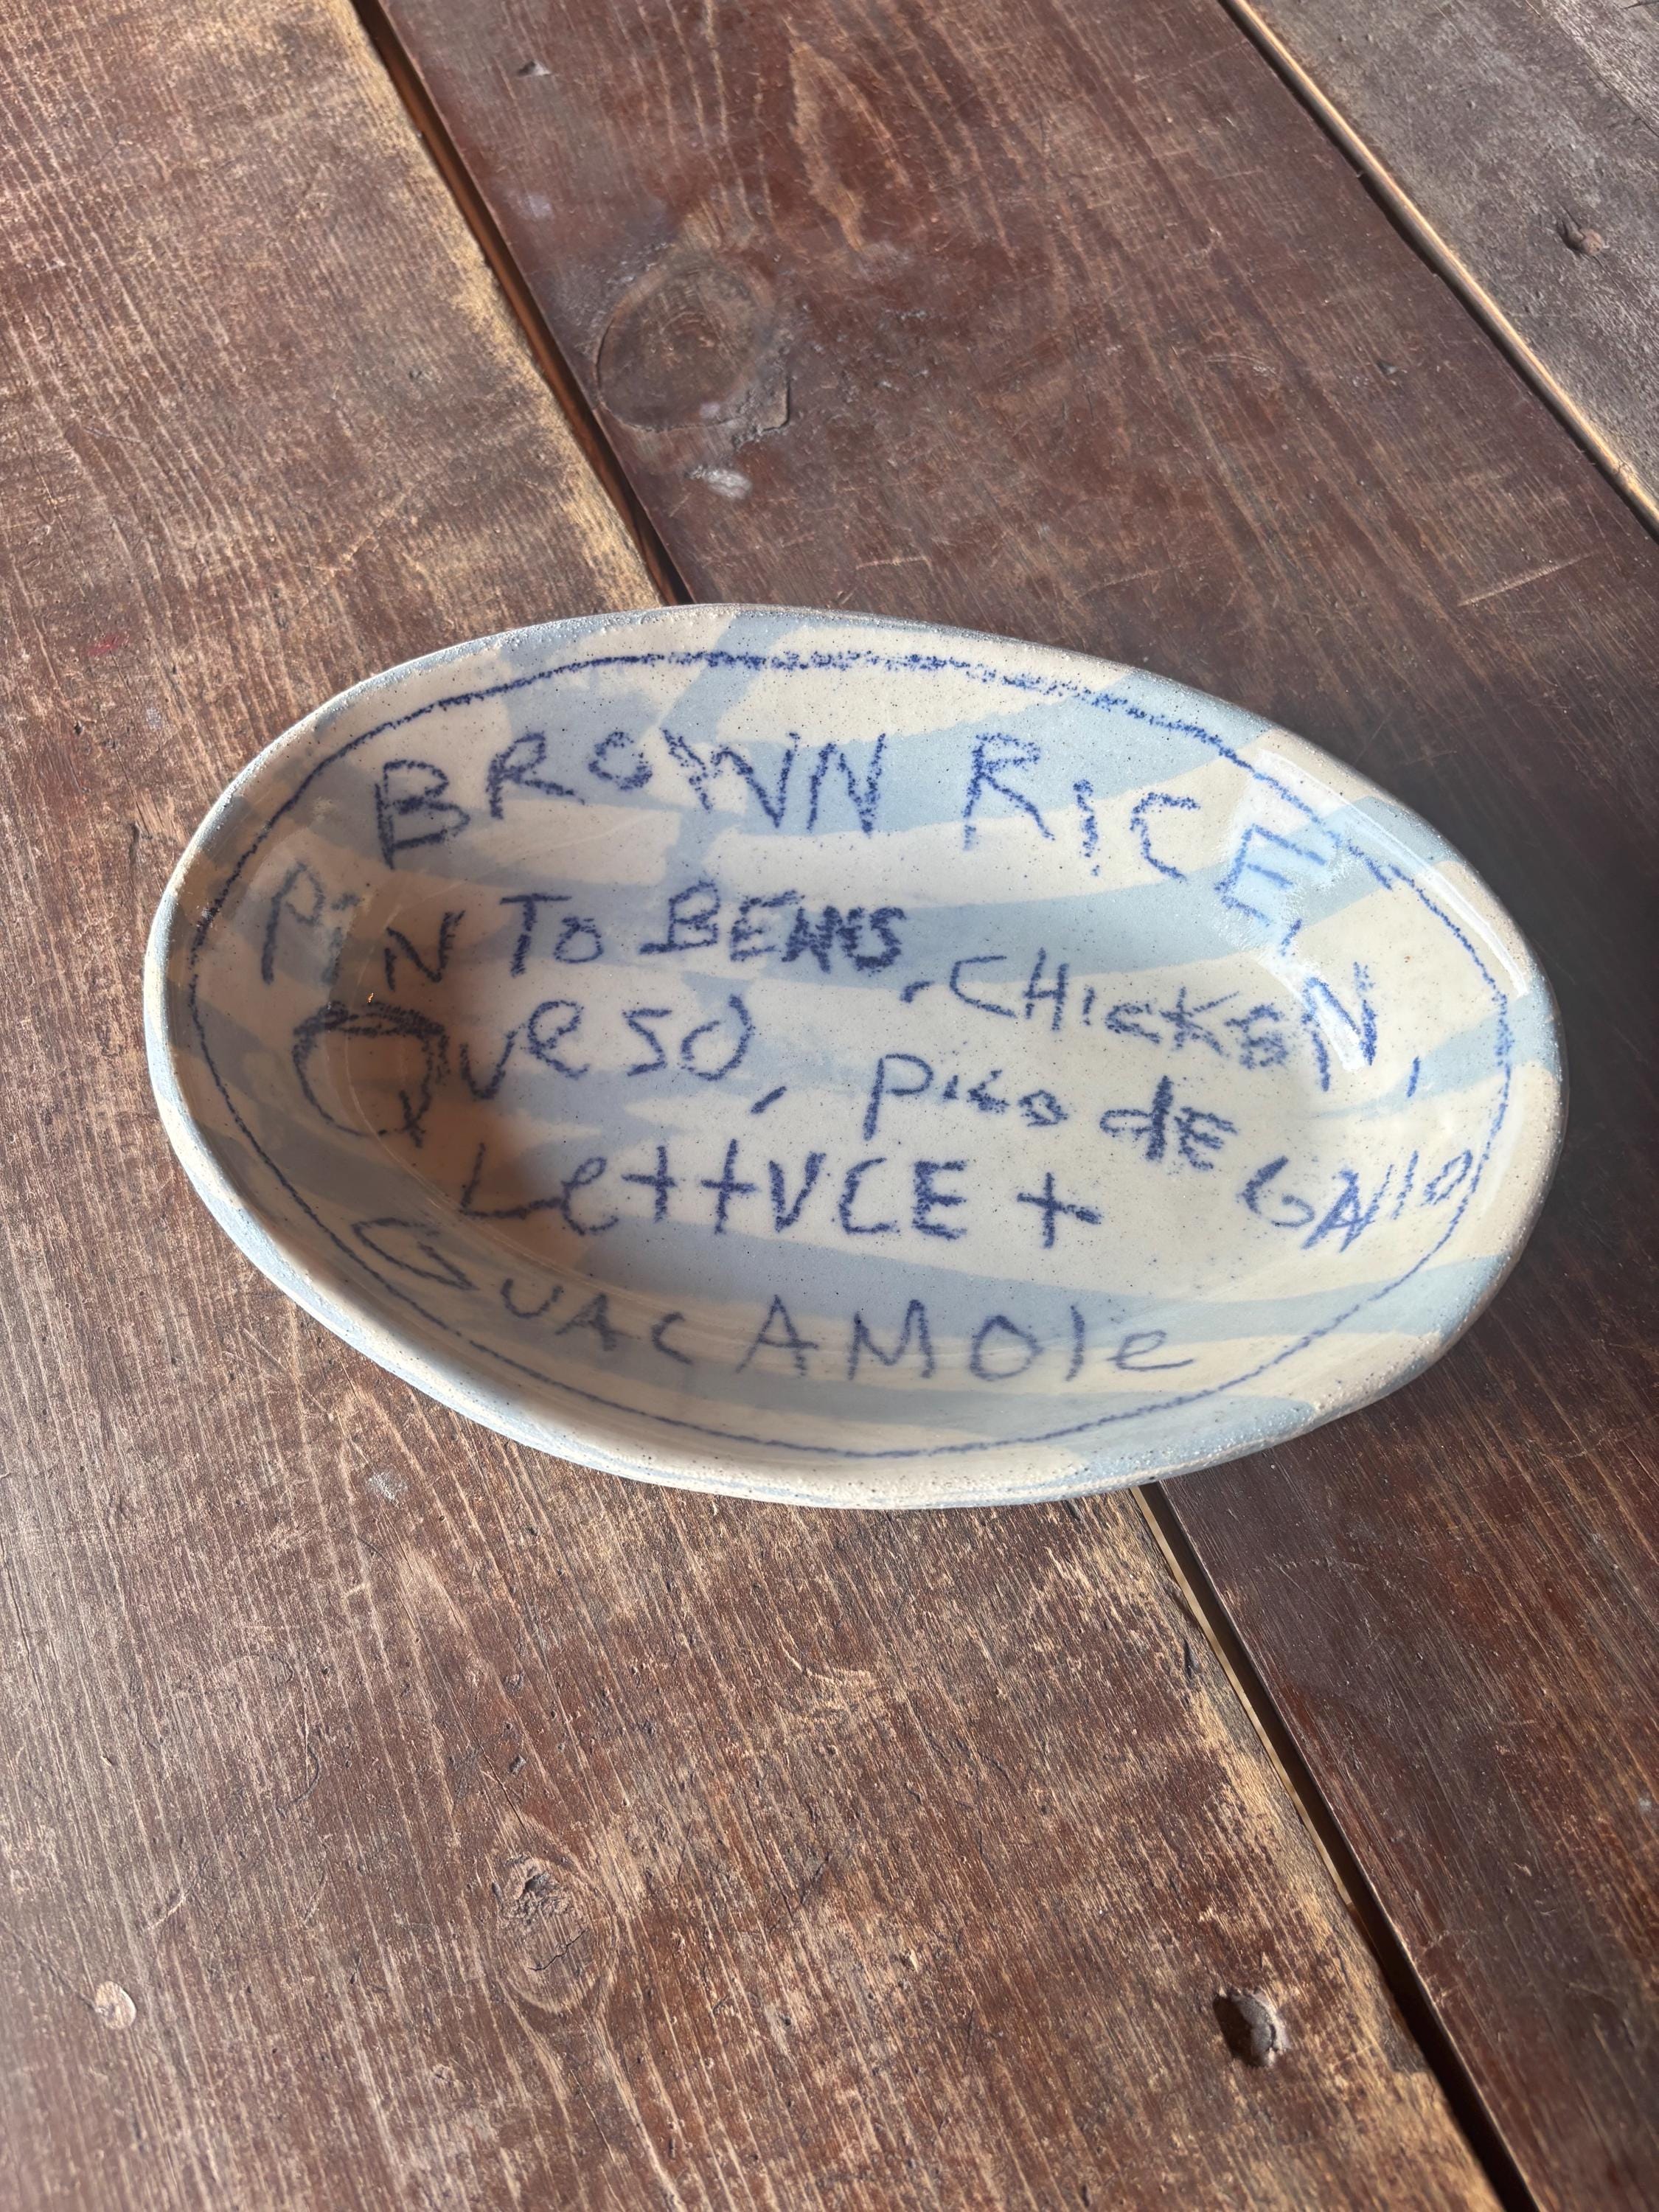 BROWN RICE,
PINTO BEANS, CHICKEN,
QUESO, PICO dE GAllO
LettUCE +
GUACAMOle